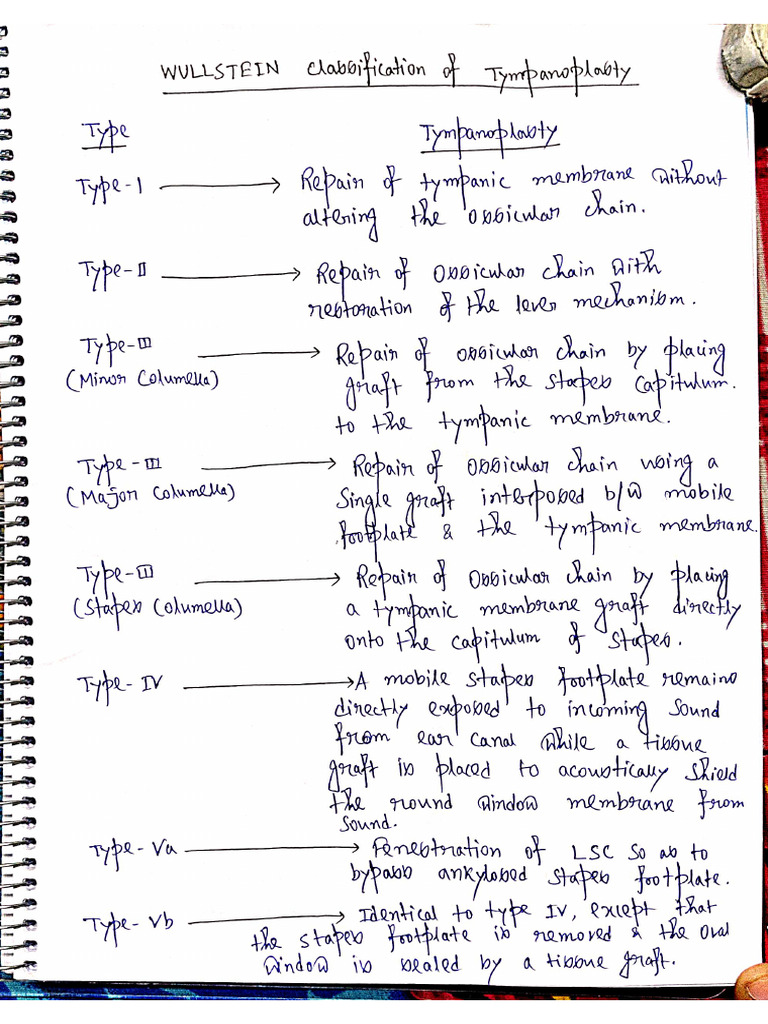 WULLSTEIN Classification of Tympanoplasty
Type Tympanoplasty
Type-I → Repair of tympanic membrane without
altering the ossicular chain.
Type-II → Repair of ossicular chain with
restoration of the lever mechanism.
Type-III → Repair of ossicular chain by placing
(Minor Columella) graft from the stapes capitulum
to the tympanic membrane.
Type-III → Repair of ossicular chain using a
(Major Columella) single graft interposed b/w mobile
footplate & the tympanic membrane.
Type-III → Repair of ossicular chain by placing
(Stapes Columella) a tympanic membrane graft directly
onto the capitulum of stapes.
Type-IV → A mobile stapes footplate remains
directly exposed to incoming sound
from ear canal while a tissue
graft is placed to acoustically shield
the round window membrane from
sound.
Type-Va → Fenestration of LSC so as to
bypass ankylosed stapes footplate.
Type-Vb → Identical to type IV, except that
the stapes footplate is removed & the oval
window is sealed by a tissue graft.